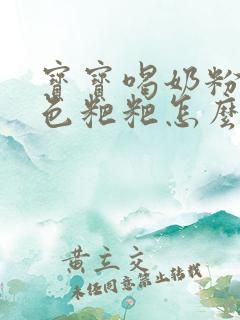 寶寶喝奶粉
色粑粑怎麼
黃立交
未經同意禁止轉載